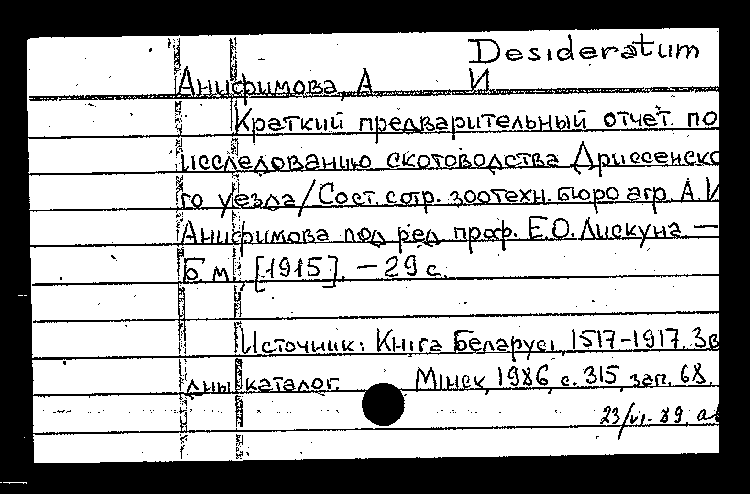 Desideratum
Анифимова, А И
Краткий предварительный отчет по
исследованию скотоводства Дриссенско
го уезда/Сост. сотр. зоотехн. бюро агр. А.И
Анифимова под ред. проф. Е.О. Лискуна —
Б.м., [1915]. — 29 с.
Источник: Кніга Беларусі, 1517-1917. Зв
дны каталог. Мінск, 1986, с. 315, зап. 68.
23/VI-89, ав